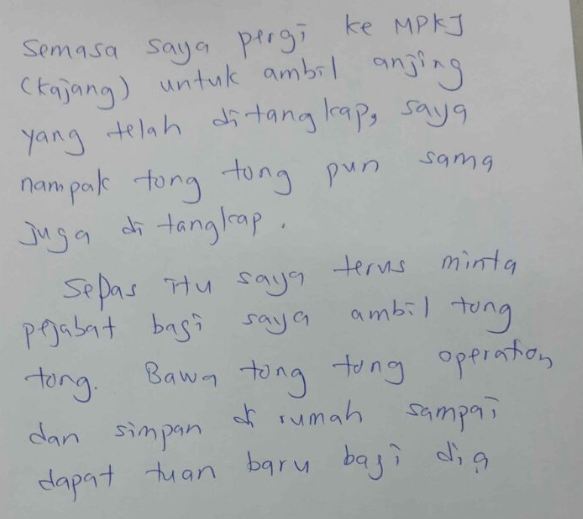 Semasa saya pergi ke MPKJ
(Kajang) untuk ambil anjing
yang telah ditangkap, saya
nampak tong tong pun sama
juga di tangkap.
Sepas itu saya terus minta
pejabat bagi saya ambil tong
tong. Bawa tong tong operation
dan simpan di rumah sampai
dapat tuan baru bagi dia